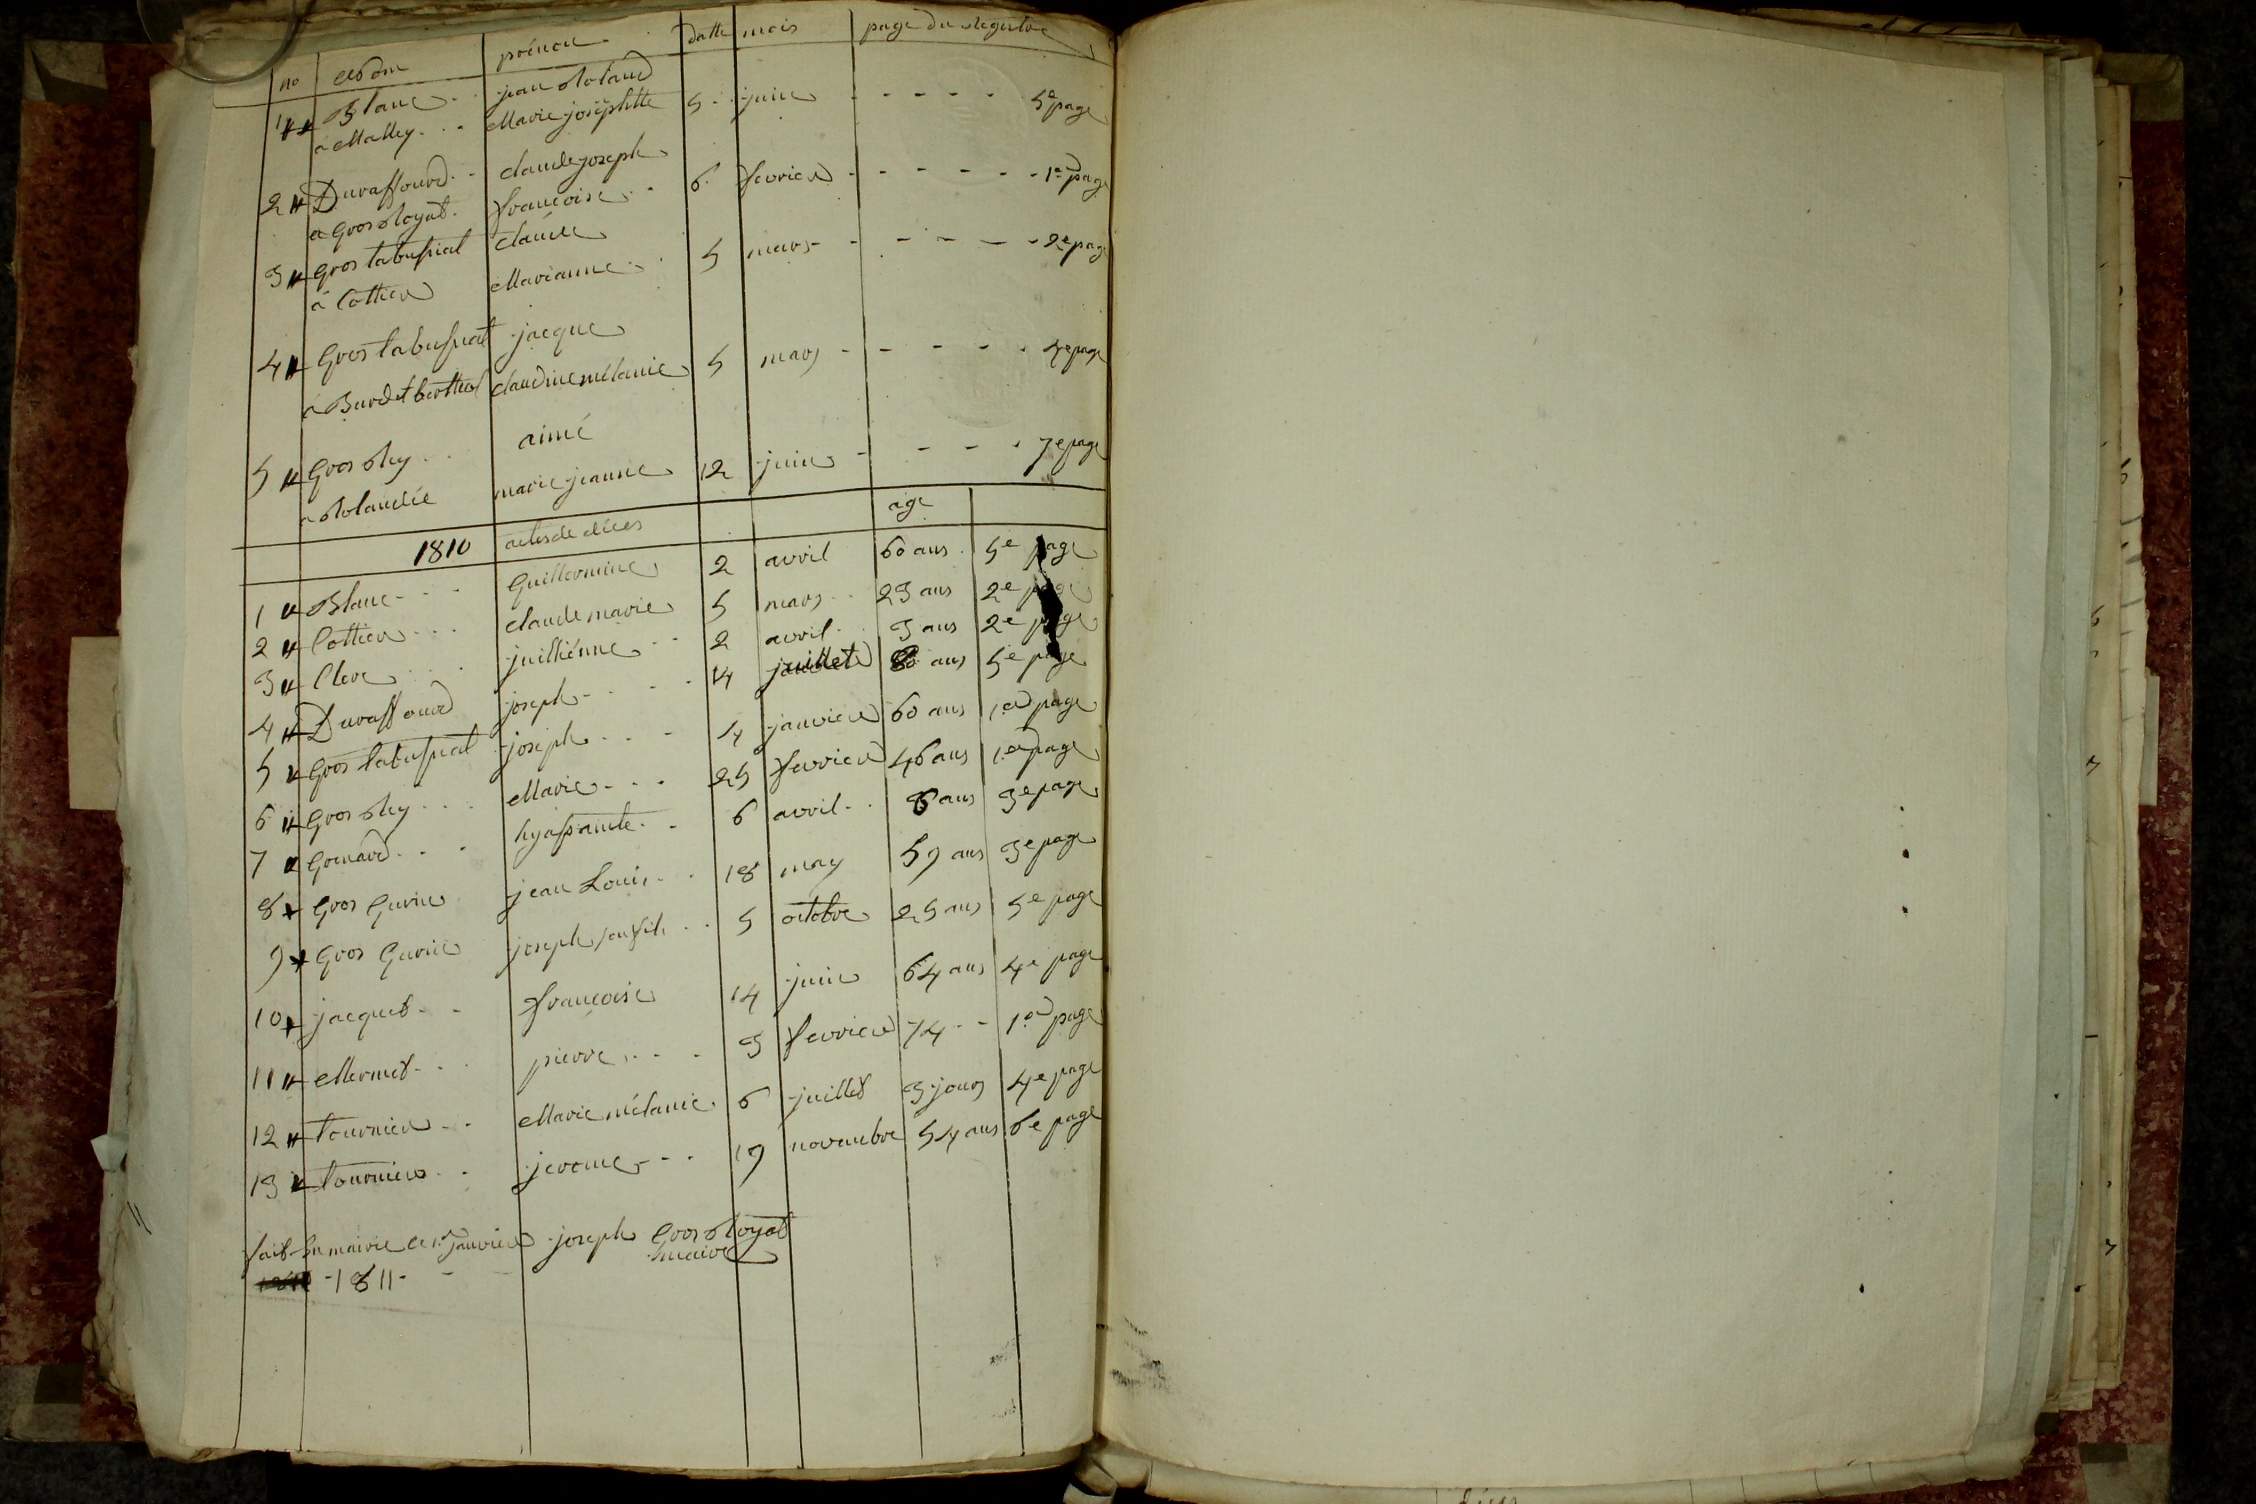 no nom prénom datte mois page du registre
1 Blanc jean Roland
a Malley Marie josephtte 5 juin 5e page
2 Duraffourd claude joseph
a gros Royat françoise 6 fevrier 1er page
3 gros tabussiat claude
à Cottier Marianne 5 mars 2e page
4 gros tabussiat jacque
à Burdet berthet claudine mélanie 5 mars 4e page
5 gros Rey aimé
a Rolandée marie jeanne 12 juin 7e page
1810 actes de déces age
1 Blanc guillermine 2 avril 60 ans 5e page
2 Cottier claude marie 5 mars 23 ans 2e page
3 Clerc juilliénne 2 avril 3 ans 2e page
4 Duraffourd joseph 14 juillet 80 ans 5e page
5 gros tabussiat joseph 4 janvier 60 ans 1er page
6 gros Rey Marie 25 fevrier 46 ans 1er page
7 gonard hyassainte 6 avril 8 ans 3e page
8 gros gurin jean Louis 18 may 59 ans 3e page
9 gros gurin joseph son fils 5 octobre 25 ans 5e page
10 jacquet françoise 14 juin 64 ans 4e page
11 Mermet pierre 3 fevrier 74 1er page
12 tournier Marie mélanie 6 juillet 3 jours 4e page
13 tournier jerome 19 novembre 54 ans 6e page
fait En mairie le 1er janvier joseph gros Royat
1811 maire